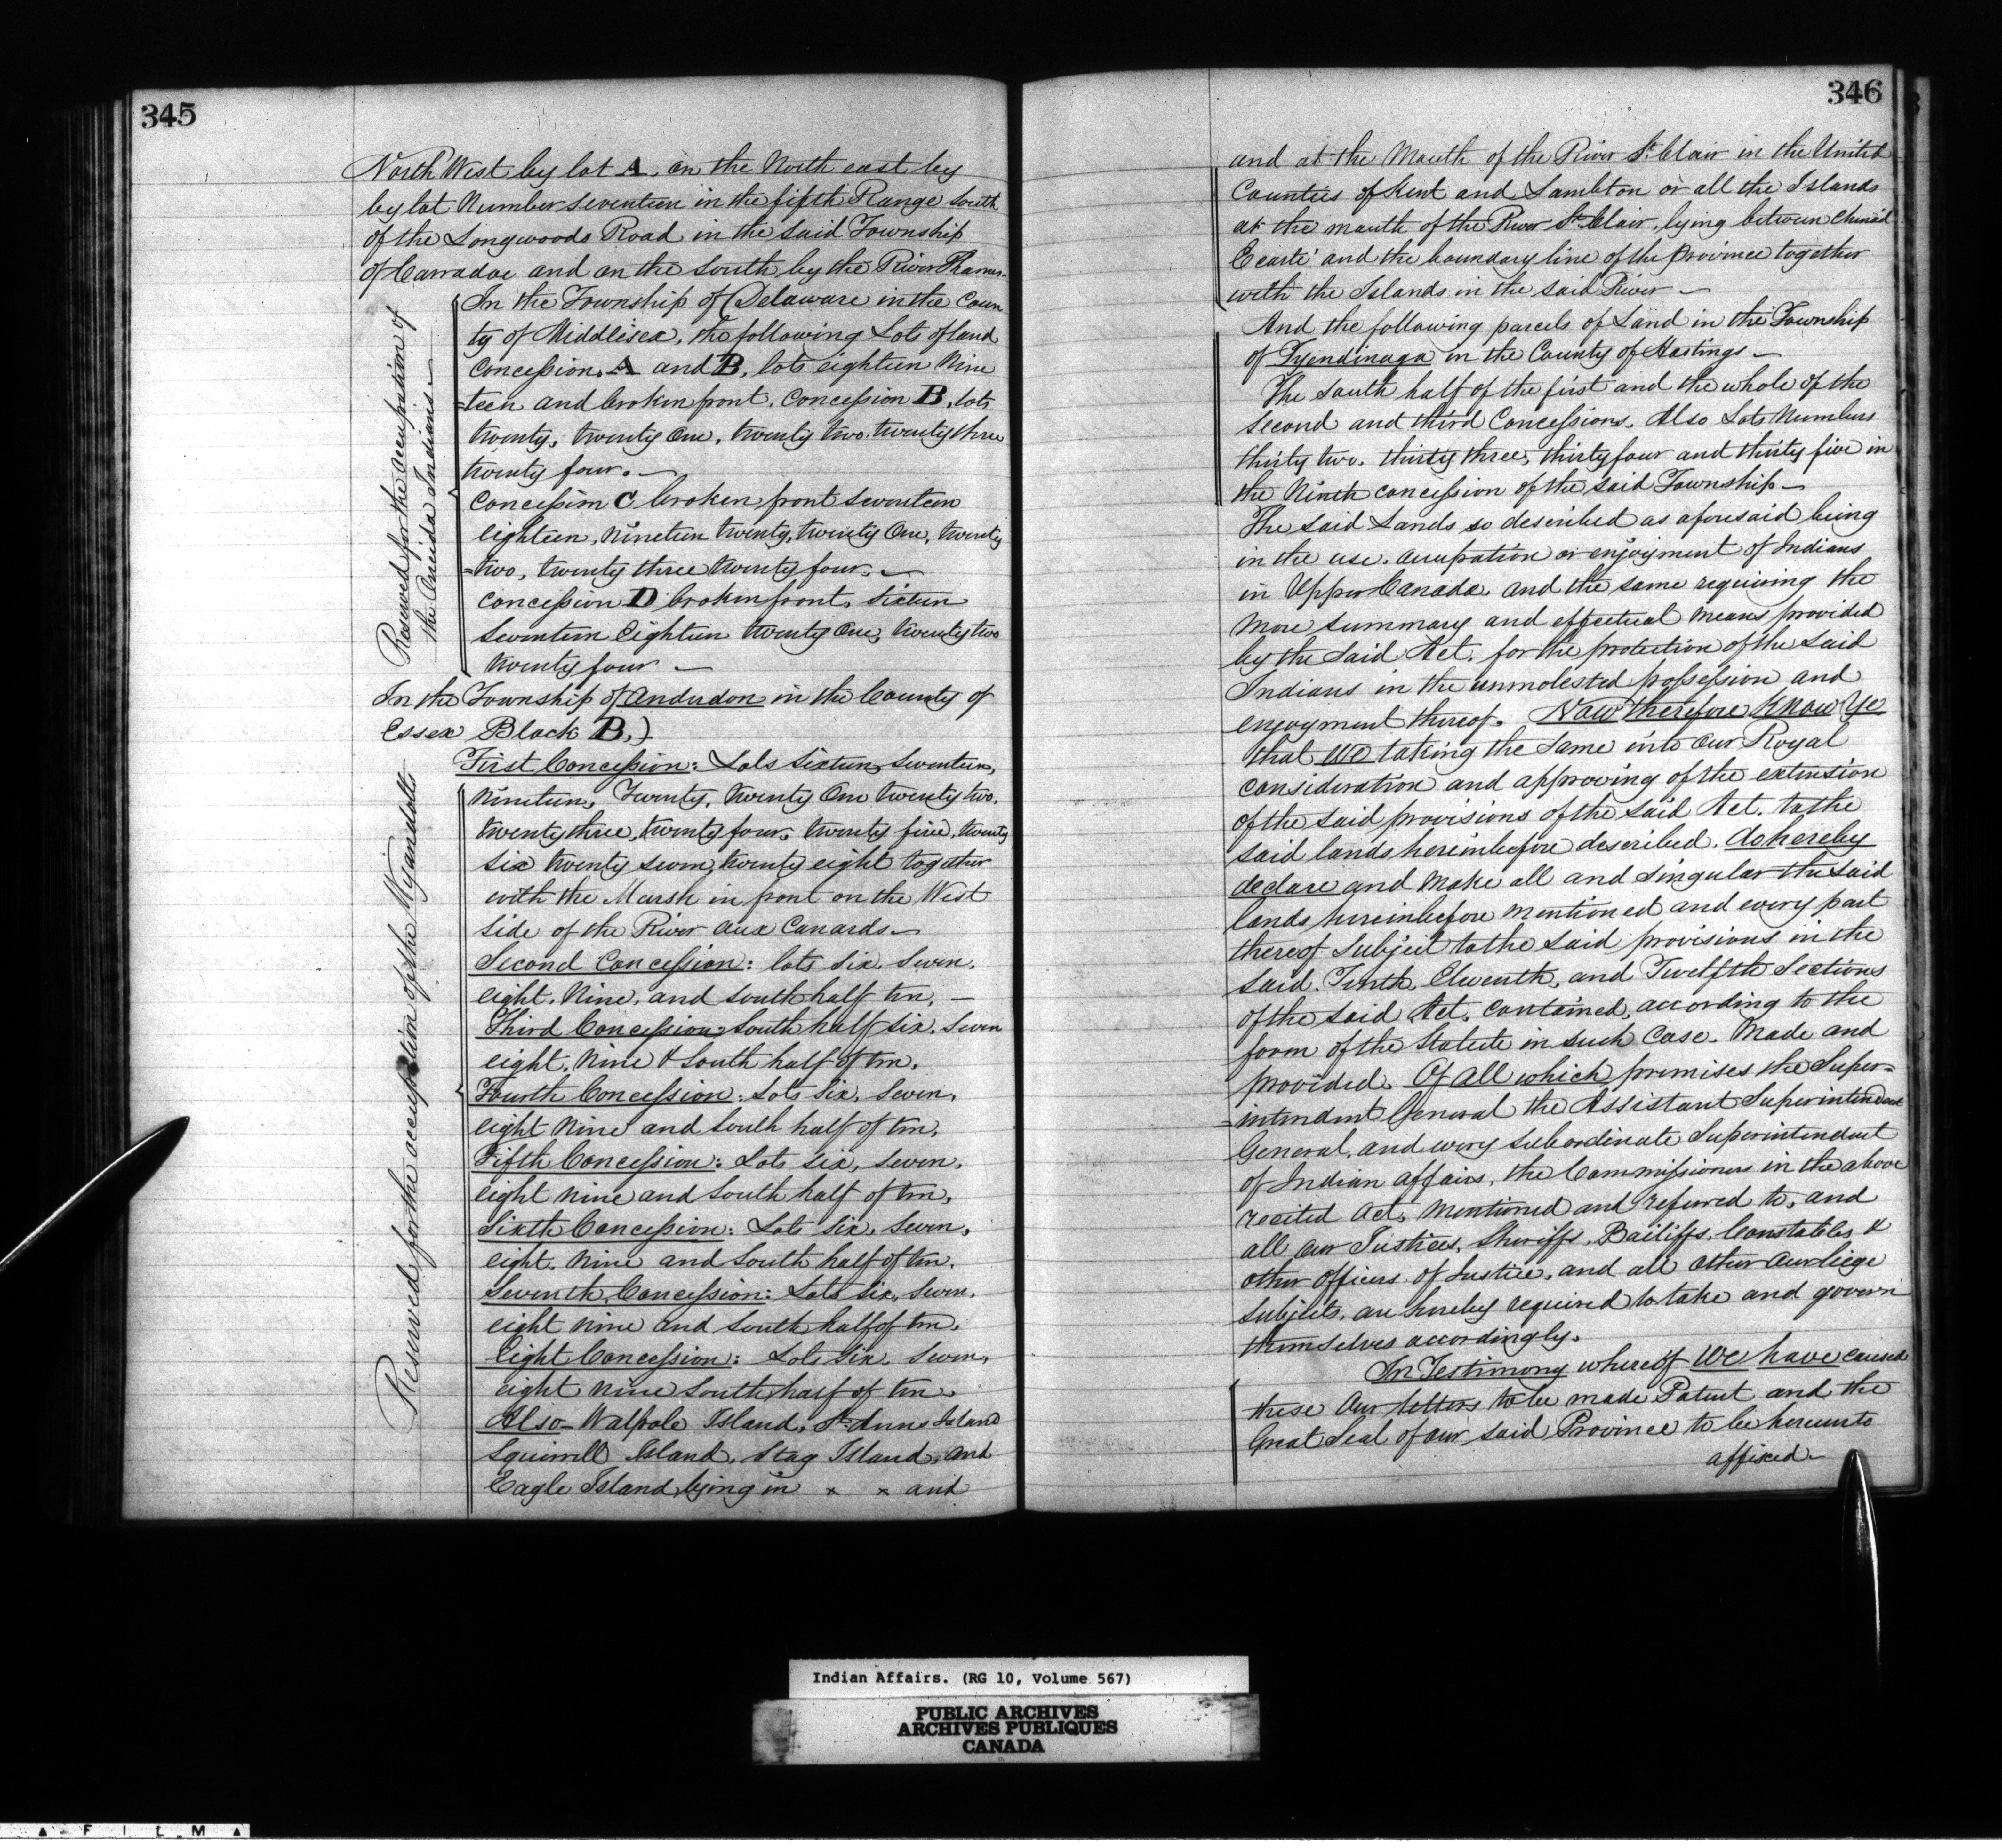 345
North West by lot A. on the North east by
by lot Number seventeen in the fifth Range South
of the Longwoods Road in the said Township
of Carradoc and on the South by the River Thames.
Reserved for the occupation of
the Oneida Indians.—
In the Township of Delaware in the Coun
ty of Middlesex, the following Lots of land
Concession. A and B, lots eighteen Nine
=teen and broken front. Concession B, lots
twenty, twenty One, twenty two. twenty three
twenty four. —
Concession C broken front seventeen
eighteen, nineteen twenty, twenty One, twenty
=two, twenty three twenty four. —
Concession D broken front, sixteen
seventeen Eighteen twenty One, twenty two
twenty four —
In the Township of Anderdon in the County of
Essex Block B.)
Reserved for the occupation of the Wyandotts
First Concession: Lots Sixteen, Seventeen,
Nineteen, Twenty, twenty One twenty two,
twenty three, twenty four, twenty five, twenty
six twenty seven, twenty eight together
with the Marsh in front on the West
side of the River aux Canards. —
Second Concession: lots six, seven,
eight, Nine, and south half ten, —
Third Concession: South half six, Seven
eight, Nine & South half of ten,
Fourth Concession: Lots six, seven,
eight Nine and South half of ten,
Fifth Concession: Lots six, seven,
eight nine and South half of ten,
Sixth Concession: Lots six, seven,
eight, nine and South half of ten,
Seventh Concession: Lots six, seven,
eight nine and South half of ten,
Eight Concession: Lots six, seven,
eight nine South half of ten.
Also — Walpole Island, St. Anns Island
Squirrell Island, Stag Island, and
Eagle Island, lying in x x and
346
and at the Mouth of the River St. Clair in the United
Counties of Kent and Lambton or all the Islands
at the mouth of the River St. Clair, lying between Chenail
Ecarté and the boundary line of the Province together
with the Islands in the said River —
And the following parcels of Land in the Township
of Tyendinaga in the County of Hastings —
The South half of the first and the whole of the
second and third Concessions. Also Lots Numbers
thirty two, thirty three, thirty four and thirty five in
the Ninth concession of the said Township —
The said Lands so described as aforesaid being
in the use, occupation or enjoyment of Indians
in Upper Canada and the same requiring the
more summary and effectual means provided
by the said Act, for the protection of the said
Indians in the unmolested possession and
enjoyment thereof. Now Therefore Know Ye
that We taking the same into Our Royal
consideration and approving of the extension
of the said provisions of the said Act, to the
said lands hereinbefore described, do hereby
declare and make all and singular the said
lands hereinbefore mentioned and every part
thereof subject to the said provisions in the
said. Tenth, Eleventh, and Twelfth Sections
of the said Act, contained, according to the
form of the Statute in such Case. Made and
provided. Of all which premises the Super=
=intendent General the Assistant Superintendent
General, and every subordinate Superintendent
of Indian affairs, the Commissioners in the above
recited Act, Mentioned and referred to, and
all Our Justices, Sheriffs, Bailiffs, Constables, &
other Officers of Justice, and all other Our liege
subjects, are hereby required to take and govern
themselves accordingly.
In Testimony whereof We have caused
these Our letters to be made Patent and the
Great Seal of our said Province to be hereunto
affixed —
Indian Affairs. (RG 10, Volume 567)
PUBLIC ARCHIVES
ARCHIVES PUBLIQUES
CANADA
FILM